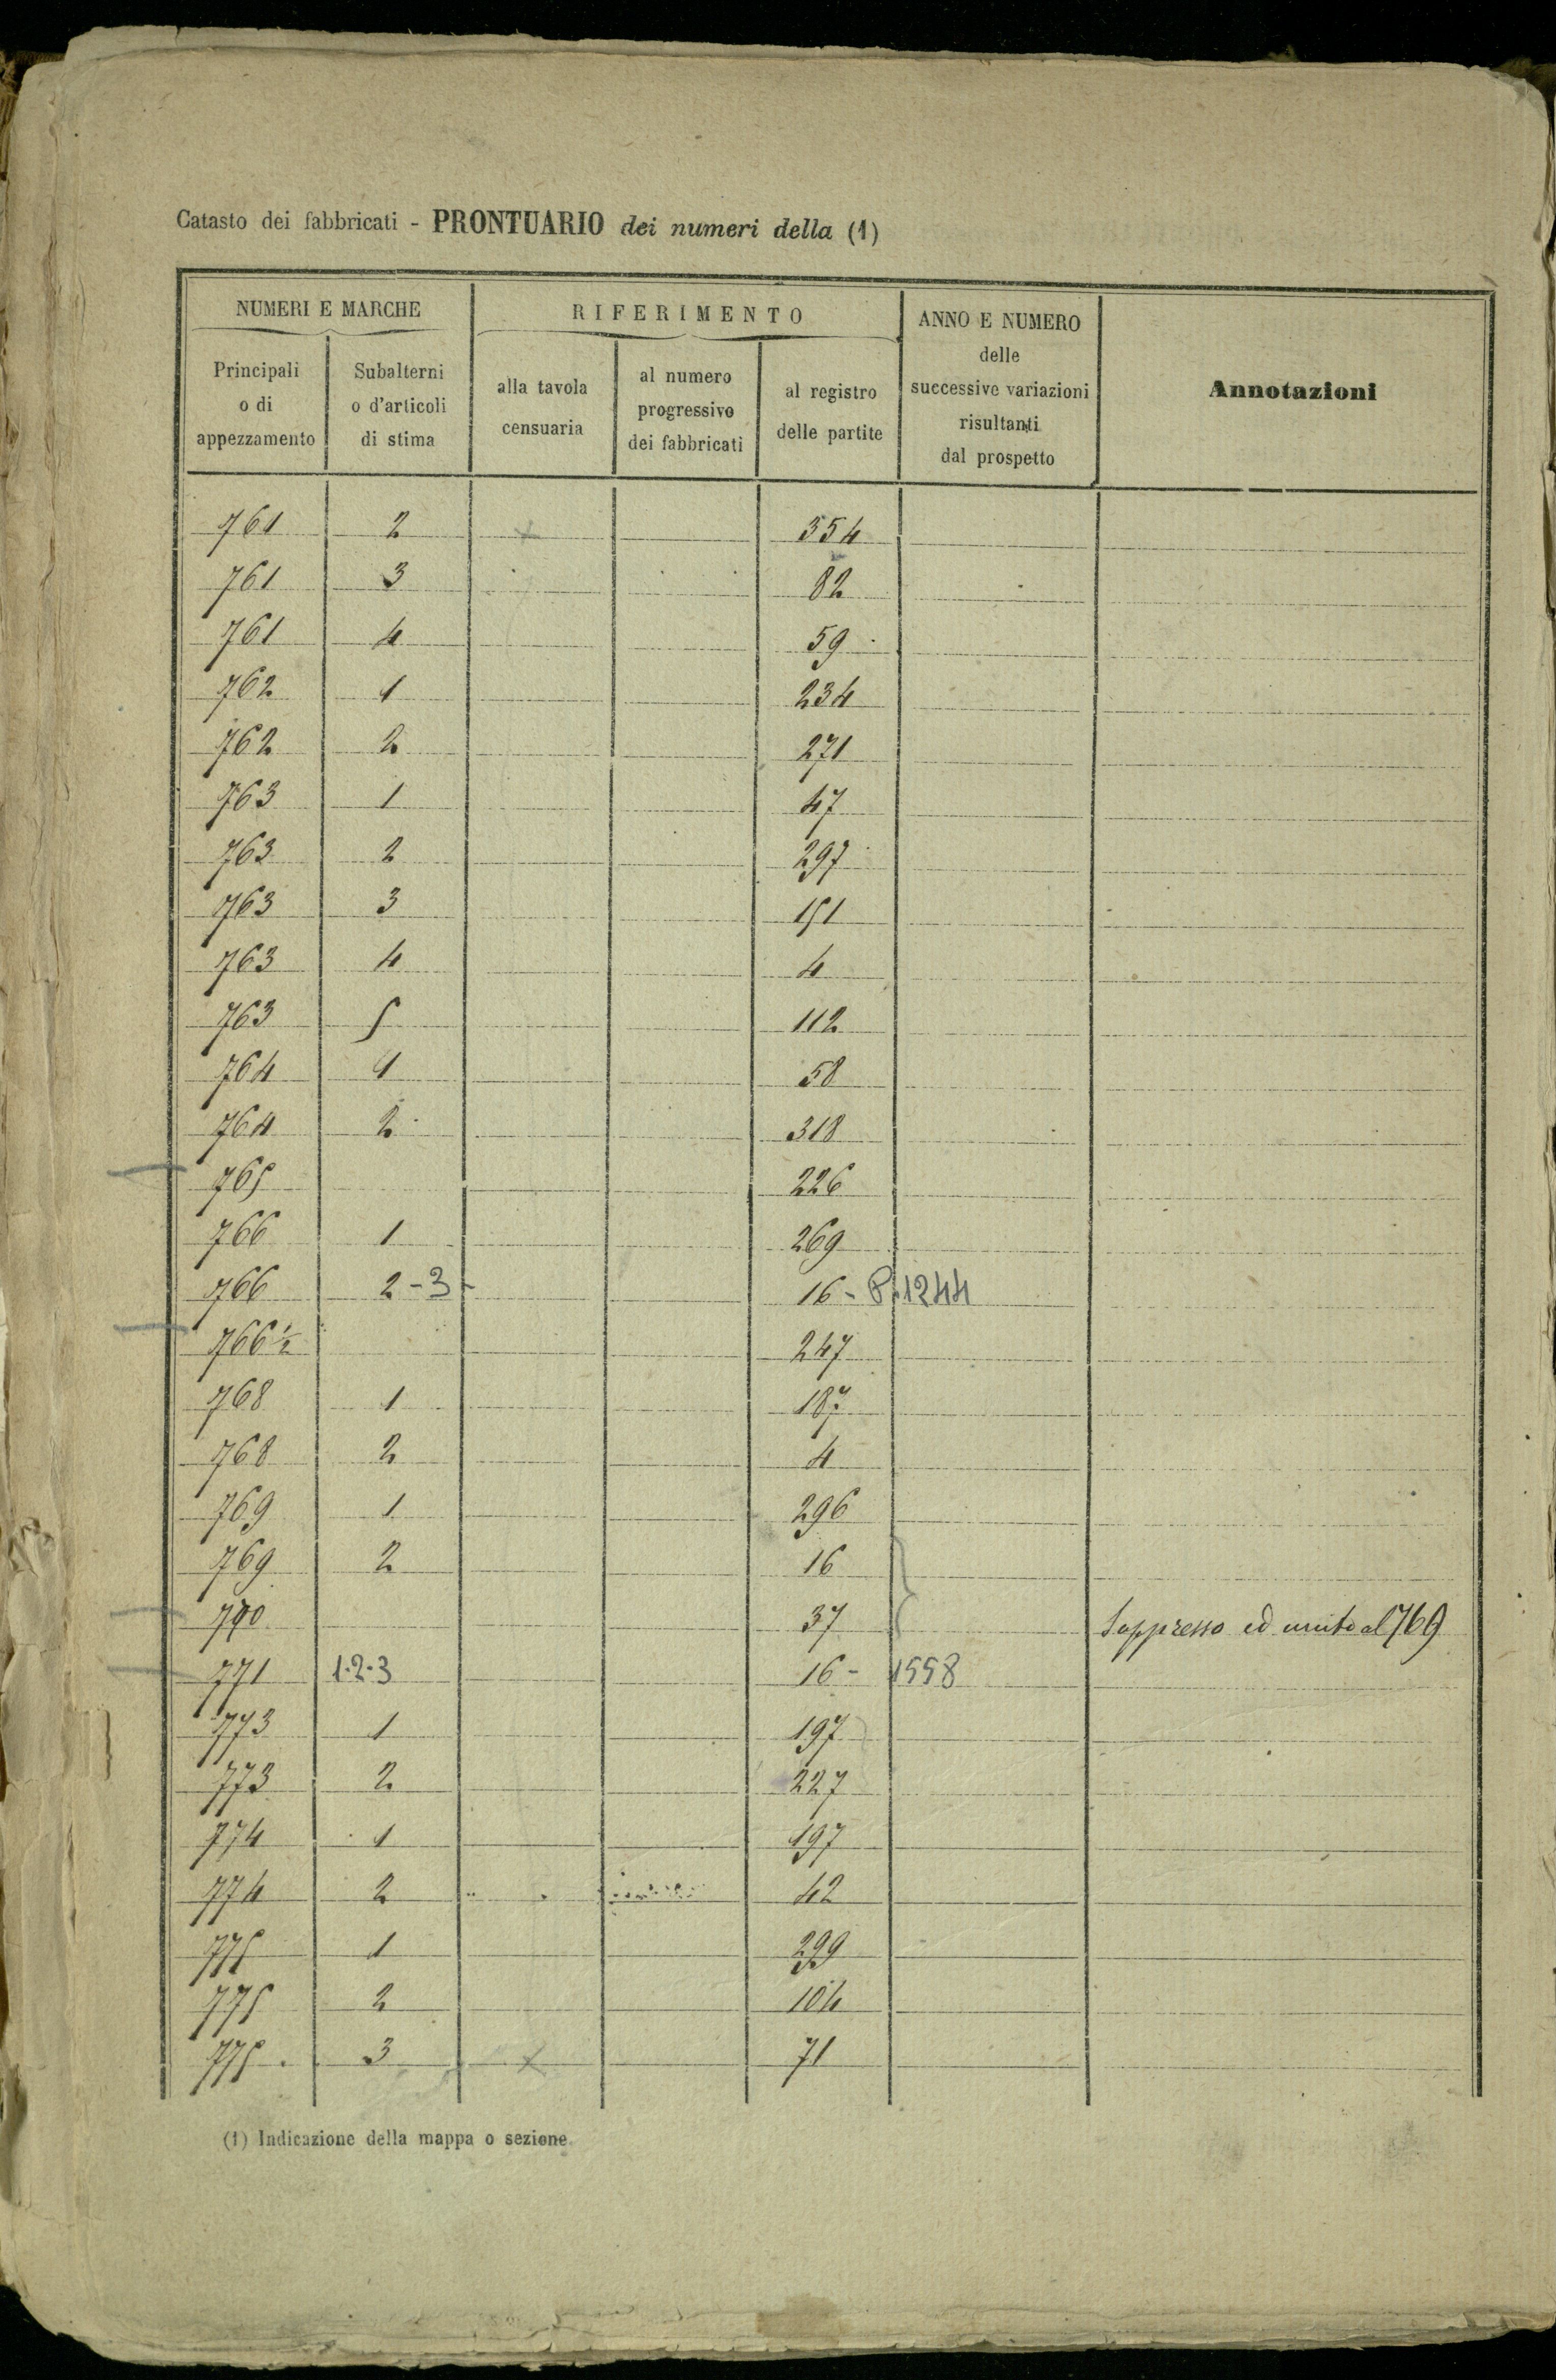 Catasto dei fabbricati - PRONTUARIO dei numeri della (1)
NUMERI E MARCHE
RIFERIMENTO
ANNO E NUMERO
delle
successive variazioni
risultanti
dal prospetto
Annotazioni
Principali
o di
appezzamento
Subalterni
o d'articoli
di stima
alla tavola
censuaria
al numero
progressivo
dei fabbricati
al registro
delle partite
761 2 354
761 3 82
761 4 59
762 1 234
762 2 271
763 1 47
763 2 297
763 3 151
763 4 4
763 5 112
764 1 58
764 2 318
765 226
766 1 269
766 2-3- 16- P. 1244
766 1/2 247
768 1 187
768 2 4
769 1 296
769 2 16
770 37 Soppresso ed unito al 769
771 1-2-3 16- 1558
773 1 197
773 2 227
774 1 197
774 2 42
775 1 299
775 2 104
775. 3 71
(1) Indicazione della mappa o sezione